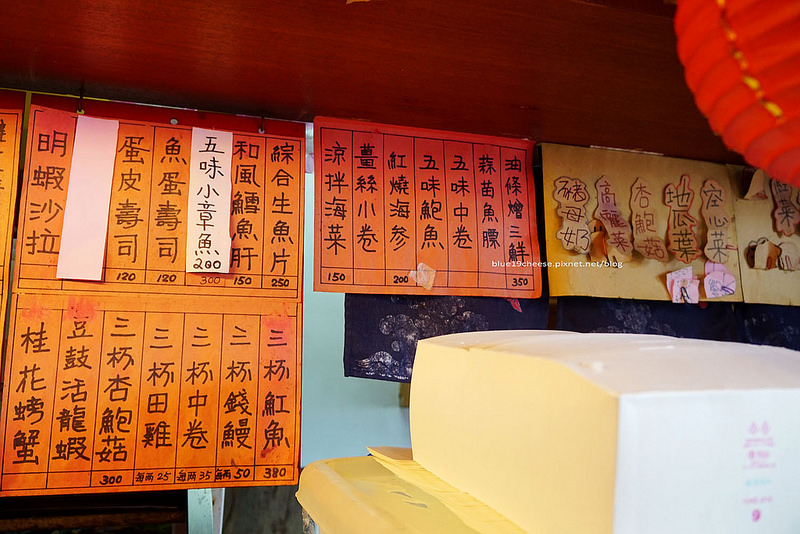 綜合生魚片 250
和風鱈魚肝 150
五味小章魚 200
魚蛋壽司 120
蛋皮壽司 120
明蝦沙拉
三杯魟魚 380
三杯錢鰻 每兩50
三杯中卷 每兩35
三杯田雞 每兩25
三杯杏鮑菇 300
豆鼓活龍蝦
桂花螃蟹
油條燴三鮮 350
蒜苗魚膘
五味中卷
五味鮑魚
紅燒海參 200
薑絲小卷
涼拌海菜 150
空心菜
地瓜葉
杏鮑菇
高麗菜
豬母奶
blue19cheese.pixnet.net/blog